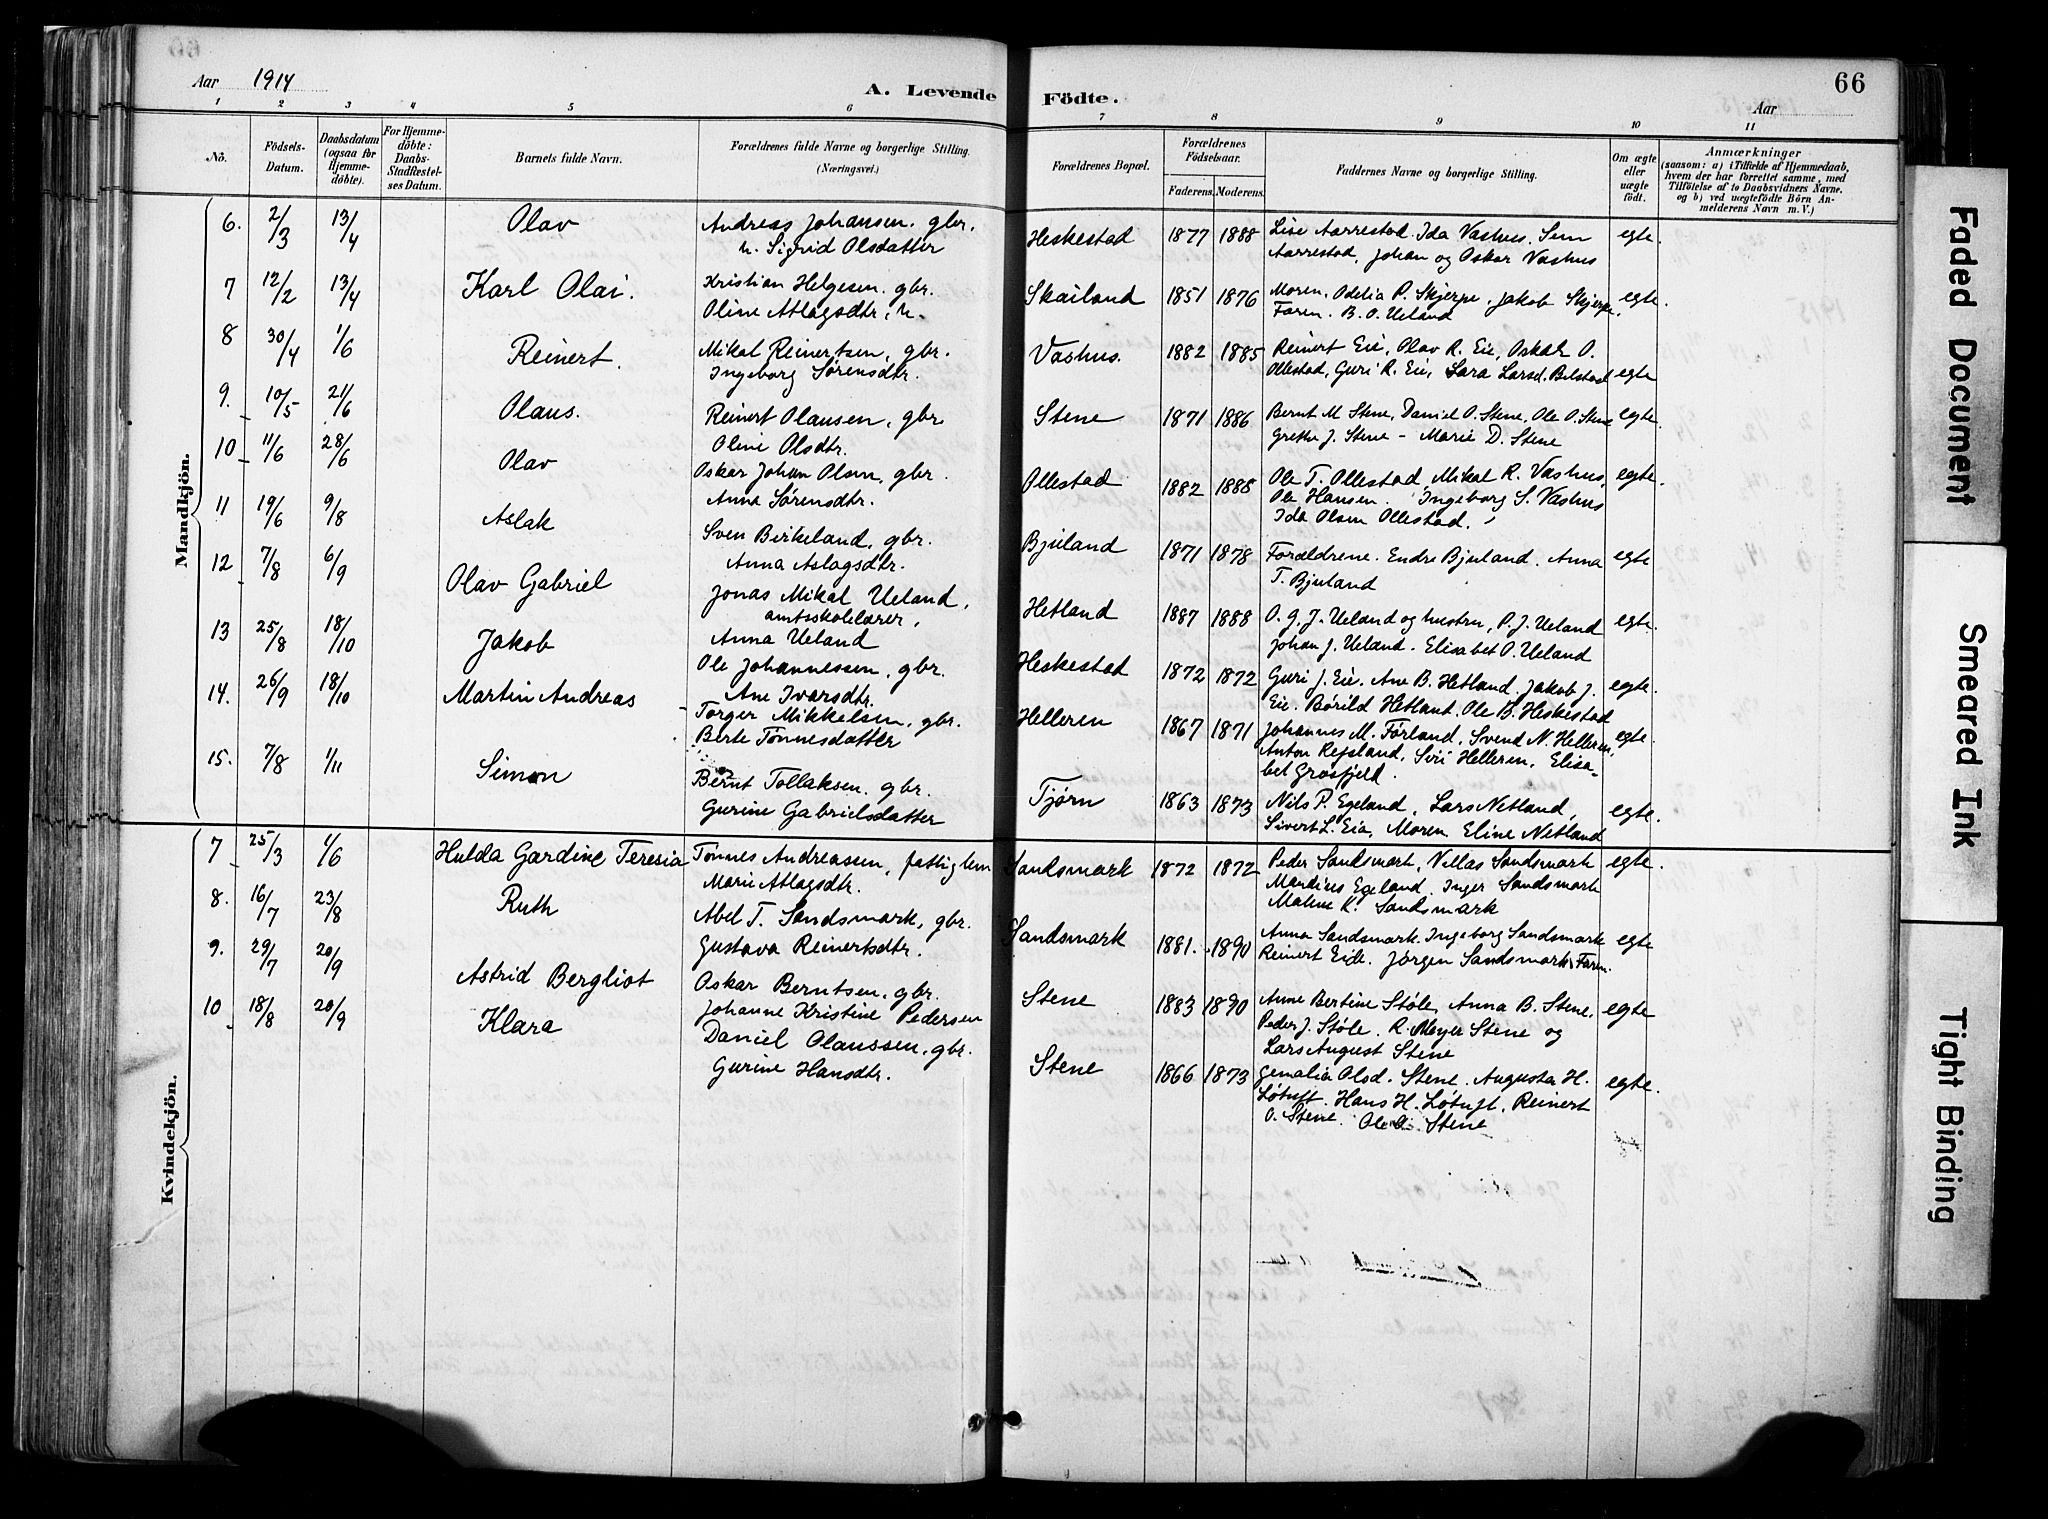 Aar 1914
A. Levende Födte.
Aar
66
1 2 3 4 5 6 7 8 9 10 11
No. Födsels-Datum. Daabsdatum (ogsaa for Hjemme-döbte). For Hjemme-döbte: Daabs-Stadfæstelses Datum. Barnets fulde Navn. Forældrenes fulde Navne og borgerlige Stilling. (Næringsvei.) Forældrenes Bopæl. Forældrenes Födselsaar. Faderens. Moderens. Faddernes Navne og borgerlige Stilling. Om ægte eller uægte födt. Anmærkninger (saasom: a) i Tilfælde af Hjemmedaab, hvem der har forrettet samme, med Tilföielse af to Daabsvidners Navne. og b) ved uægtefödte Börn Anmelderens Navn m. V.)
Mandkjön.
6. 2/3 13/4 Olav Andreas Johansen. gbr. Heskestad 1877 1888 Lise Aarrestad. Ida Vashus. Sem egte.
h. Sigrid Olsdatter Aarrestad, Johan og Oskar Vashus
7 12/2 13/4 Karl Olai. Kristian Helgesen. gbr. Skailand 1851 1876 Moren, Odelia P. Skjerpe, Jakob Skjerpe. egte.
Oline Atlagsdtr, h. Faren. B. O. Ueland
8 30/4 1/6 Reinert. Mikal Reinertsen, gbr. Vashus. 1882 1885 Reinert Eie, Olav R. Eie, Oskar O.
Ingeborg Sørensdtr. Ollestad, Guri R. Eie, Sara Larsd. Belstad egte
9. 10/5 21/6 Olaus. Reinert Olausen, gbr. Stene 1871 1886 Bernt M Stene, Daniel O. Stene, Ole O. Stene egte.
Oline Olsdtr. Grethe J. Stene - Marie D. Stene
10 11/6 28/6 Olav Oskar Johan Olsen, gbr. Ollestad 1882 1888 Ole T. Ollestad, Mikal R. Vashus, egte.
Anna Sørensdtr. Ole Hansen. Ingeborg S. Vashus
Ida Olsen Ollestad.
11 19/6 9/8 Aslak Sven Birkeland, gbr. Bjuland 1871 1878 Forældrene. Endre Bjuland. Anna egte
Anna Aslagsdtr. T. Bjuland
12 7/8 6/9 Olav Gabriel Jonas Mikal Ueland, Hetland 1887 1888 O. G. J. Ueland og hustru, P. J. Ueland egte.
amtsskolelærer, Johan J. Ueland. Elisabet O. Ueland
Anna Ueland
13 25/8 18/10 Jakob Ole Johannessen, gbr. Heskestad 1872 1872 Guri J. Eie. Ane B. Hetland, Jakob J. egte.
Ane Ivarsdtr. Eie. Børild Hetland. Ole B. Heskestad
14. 26/9 18/10 Martin Andreas Torger Mikkelsen, gbr. Helleren 1867 1871 Johannes M. Førland, Svend N. Helleren, egte.
Berte Tønnesdatter Anton Refsland, Siri Helleren, Elisa-
bet Grøsfjeld.
15. 7/8 1/11 Simon Bernt Tollaksen. gbr. Tjørn 1863 1873 Nils P. Egeland, Lars Netland, egte.
Gurine Gabrielsdatter Sivert L. Eia, Moren Eline Netland
Kvindekjön.
7 25/3 1/6 Hulda Gardine Teresia Tønnes Andreassen, fattiglem Sandsmark 1872 1872 Peder Sandsmark, Villas Sandsmark egte.
Marie Atlagsdtr. Mardius Egeland. Inger Sandsmark
Malene K. Sandsmark
8. 16/7 23/8 Ruth Abel T. Sandsmark, gbr. Sandsmark 1881. 1890 Anna Sandsmark. Ingeborg Sandsmark egte
Gustava Reinertsdtr. Reinert Eide. Jørgen Sandsmark. Faren.
9. 29/7 20/9 Astrid Bergliot Oskar Berntsen, gbr. Stene 1883 1890 Anne Bertine Støle, Anna B. Stene, egte
Johanne Kristine Pedersen Peder J. Støle. R. Meyer Stene og
Lars August Stene
10 18/8 20/9 Klara Daniel Olaussen, gbr. Stene 1866 1873 Gemalia Olsd. Stene. Augusta H. egte.
Gurine Hansdtr. Løtuft. Hans H. Løtuft, Reinert
O. Stene. Ole O. Stene
Faded Document
Smeared Ink
Tight Binding